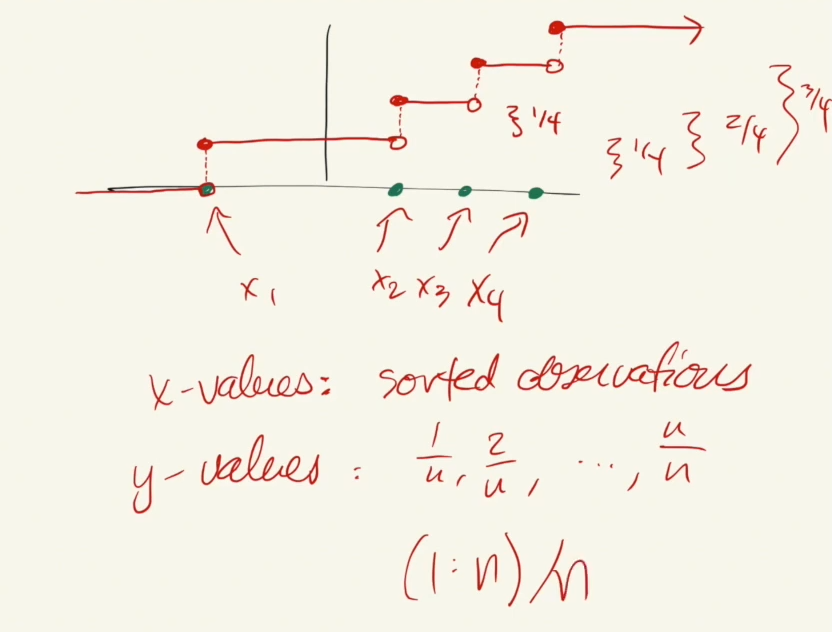 } 1/4
} 1/4 } 2/4 } 3/4
x1 x2 x3 x4
x-values: sorted observations
y-values: 1/n, 2/n, ..., n/n
(1:n)/n